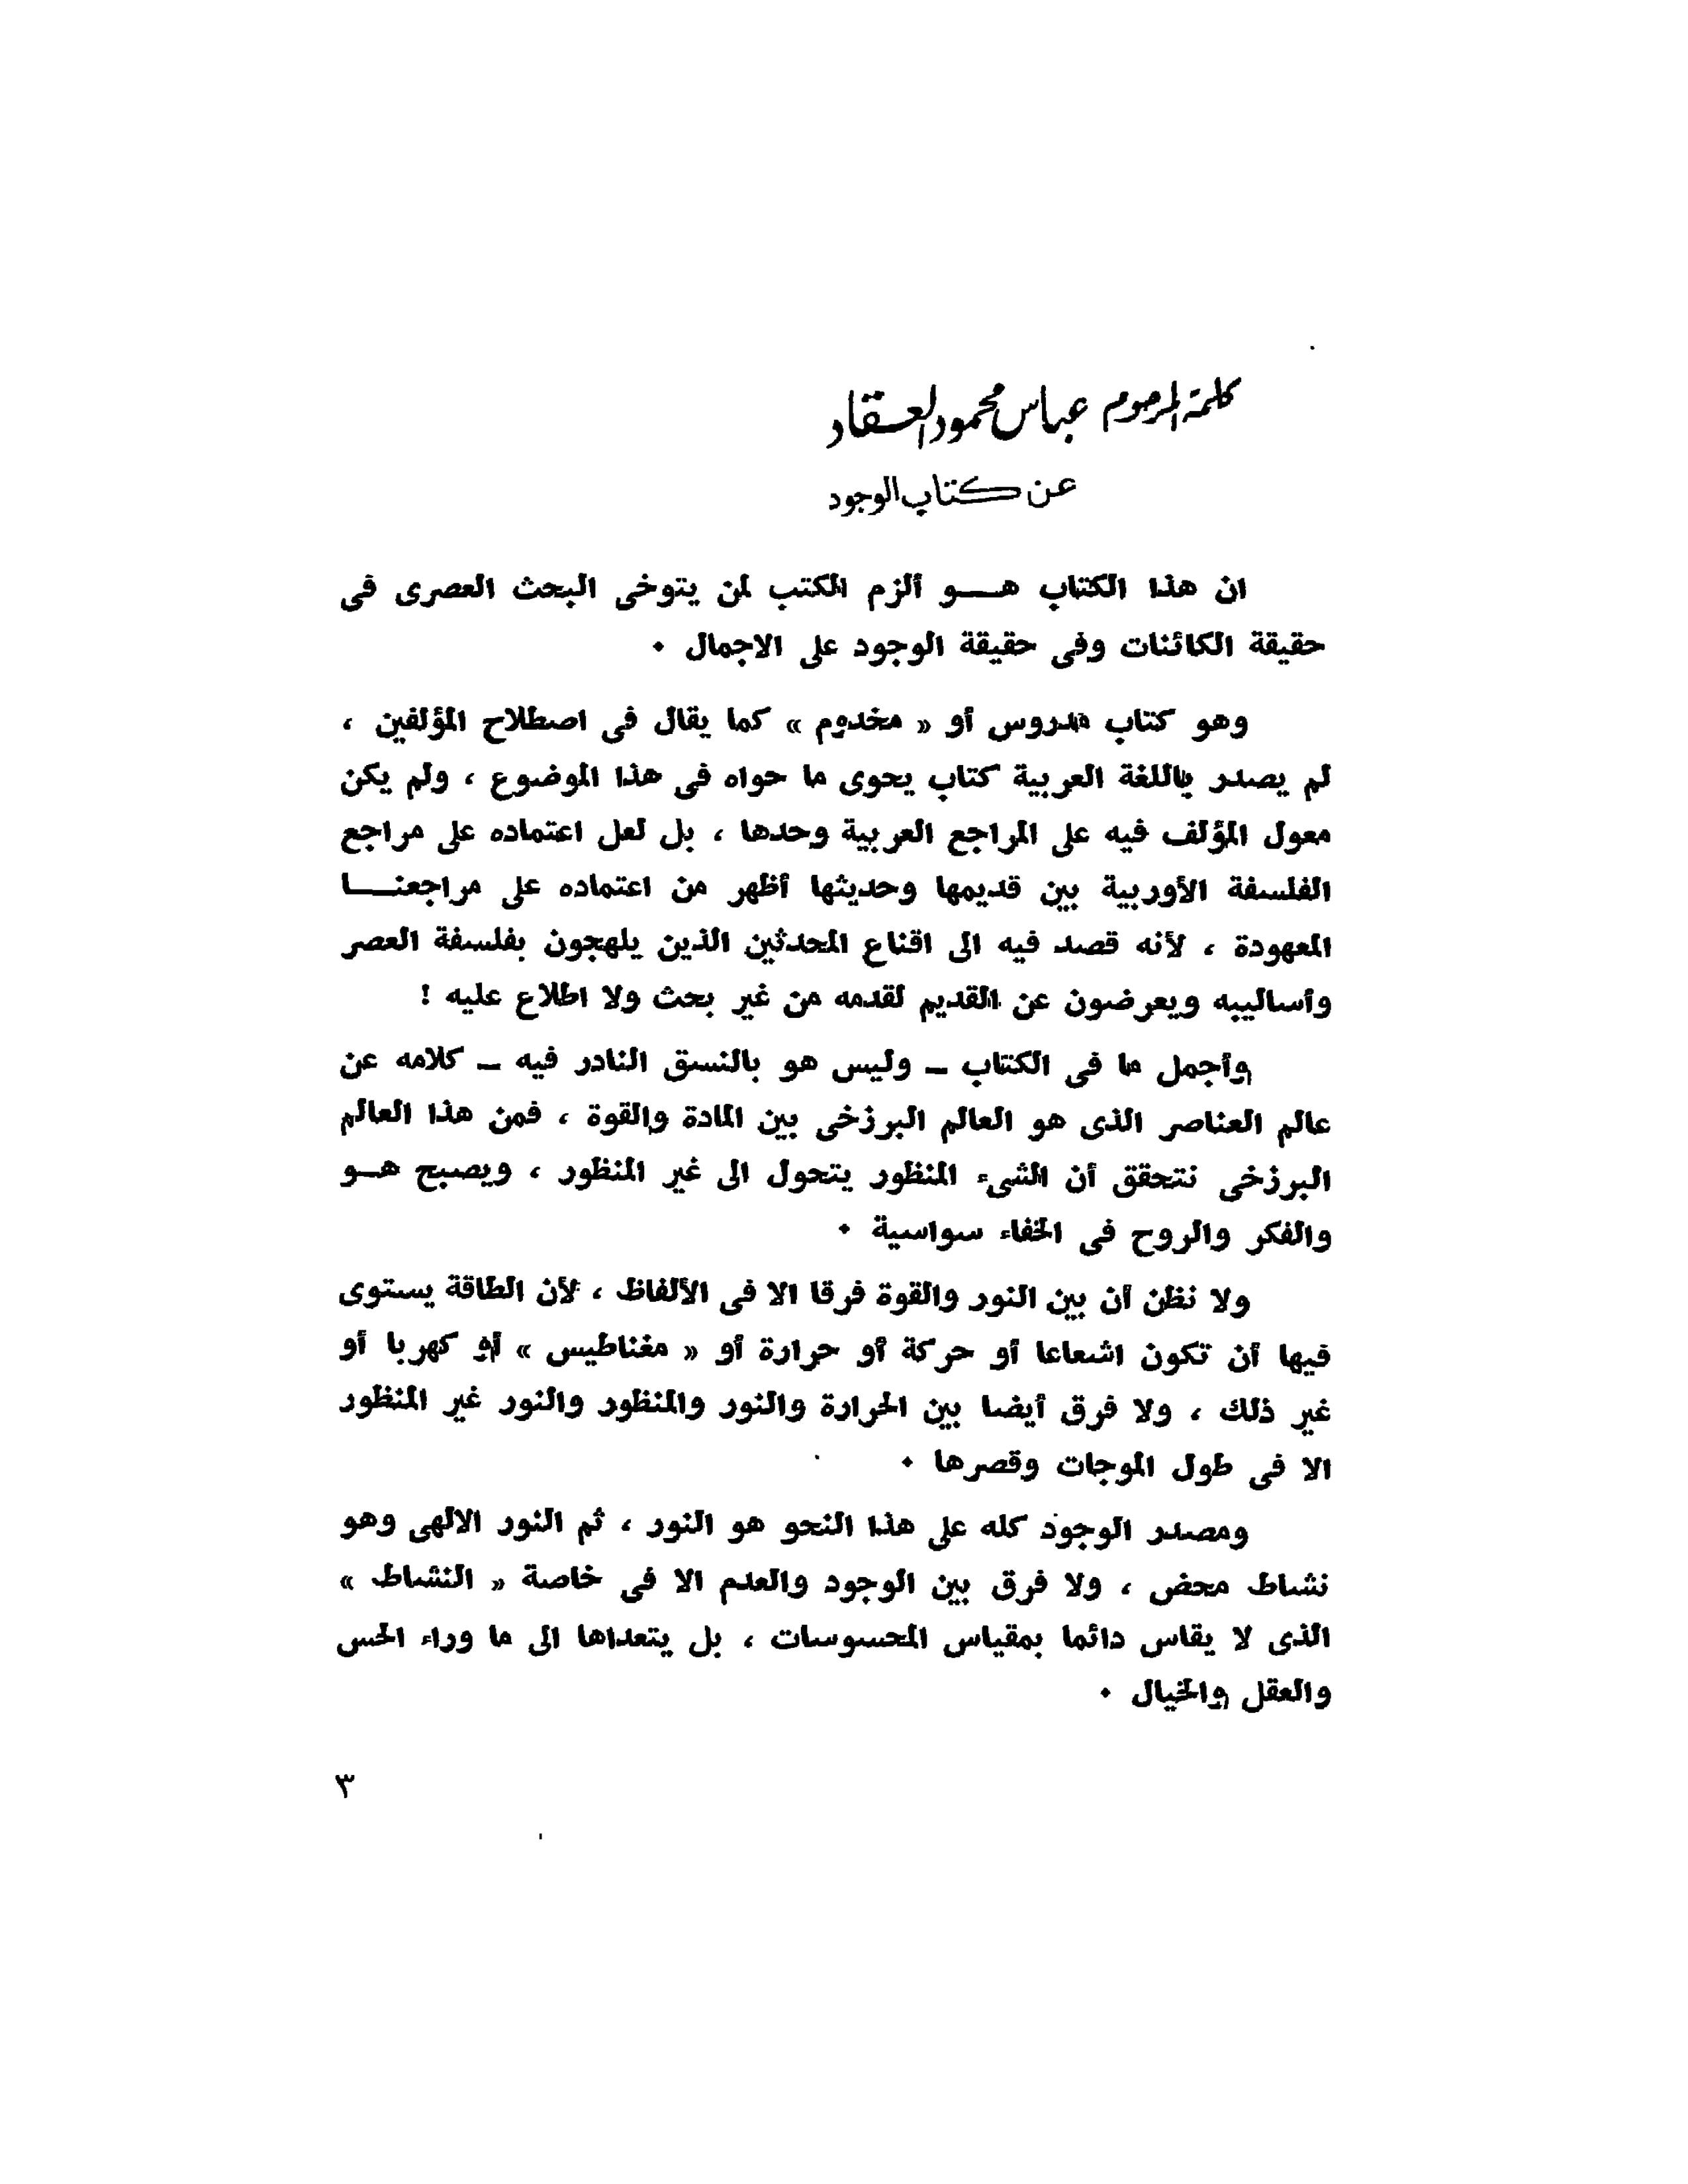 كلمة المرحوم عباس محمود العقاد
عن كتاب الوجود
ان هذا الكتاب هـــو ألزم الكتب لمن يتوخى البحث العصرى فى
حقيقة الكائنات وفى حقيقة الوجود على الاجمال ٠
وهو كتاب مدروس أو « مخدوم » كما يقال فى اصطلاح المؤلفين ،
لم يصدر باللغة العربية كتاب يحوى ما حواه فى هذا الموضوع ، ولم يكن
معول المؤلف فيه على المراجع العربية وحدها ، بل لعل اعتماده على مراجع
الفلسفة الأوربية بين قديمها وحديثها أظهر من اعتماده على مراجعنـــا
المعهودة ، لأنه قصد فيه الى اقناع المحدثين الذين يلهجون بفلسفة العصر
وأساليبه ويعرضون عن القديم لقدمه من غير بحث ولا اطلاع عليه !
وأجمل ما فى الكتاب ــ وليس هو بالنسق النادر فيه ــ كلامه عن
عالم العناصر الذى هو العالم البرزخى بين المادة والقوة ، فمن هذا العالم
البرزخى نتحقق أن الشىء المنظور يتحول الى غير المنظور ، ويصبح هــو
والفكر والروح فى الخفاء سواسية ٠
ولا نظن أن بين النور والقوة فرقا الا فى الألفاظ ، لأن الطاقة يستوى
فيها أن تكون اشعاعا أو حركة أو حرارة أو « مغناطيس » أو كهربا أو
غير ذلك ، ولا فرق أيضا بين الحرارة والنور والمنظور والنور غير المنظور
الا فى طول الموجات وقصرها ٠
ومصدر الوجود كله على هذا النحو هو النور ، ثم النور الالهى وهو
نشاط محض ، ولا فرق بين الوجود والعدم الا فى خاصة « النشاط »
الذى لا يقاس دائما بمقياس المحسوسات ، بل يتعداها الى ما وراء الحس
والعقل والخيال ٠
٣